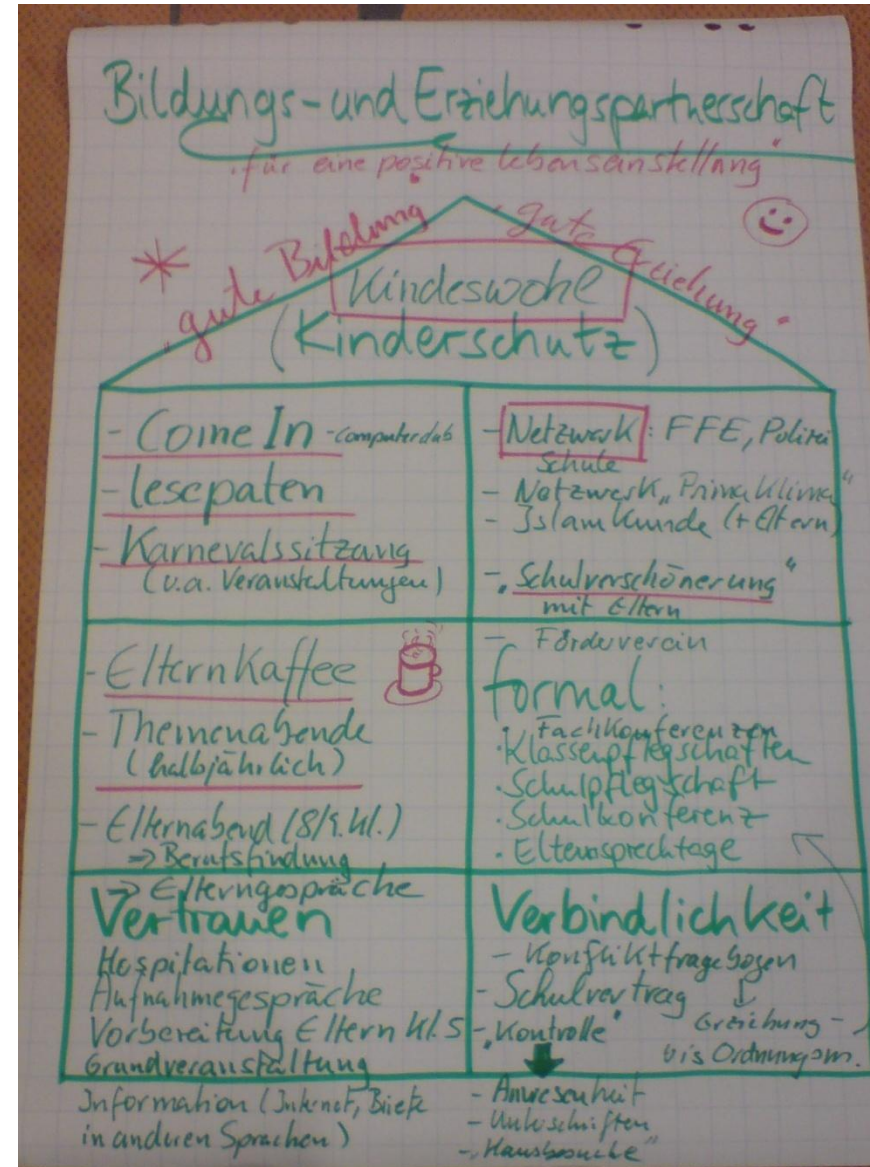 Bildungs- und Erziehungspartnerschaft
"für eine positive Lebenseinstellung"
"gute Bildung
gute Erziehung"
Kindeswohl
(Kinderschutz)
- Come In - Computerclub
- Lesepaten
- Karnevalssitzung
(u.a. Veranstaltungen)
- Netzwerk: FFE, Polizei
Schule
- Netzwerk "Prima Klima"
- Islamkunde (+ Eltern)
- "Schulverschönerung"
mit Eltern
- Elternkaffee
- Themenabende
(halbjährlich)
- Elternabend (8/9. Kl.)
⇒ Berufsfindung
⇒ Elterngespräche
- Förderverein
formal:
· Fachkonferenzen
· Klassenpflegschaften
· Schulpflegschaft
· Schulkonferenz
· Elternsprechtage
Vertrauen
Hospitationen
Aufnahmegespräche
Vorbereitung Eltern Kl. 5
Grundveranstaltung
Information (Internet, Briefe
in anderen Sprachen)
Verbindlichkeit
- Konfliktfragebogen
- Schulvertrag
- "Kontrolle"
Erziehung -
bis Ordnungsm.
- Anwesenheit
- Unterschriften
- "Hausbesuche"